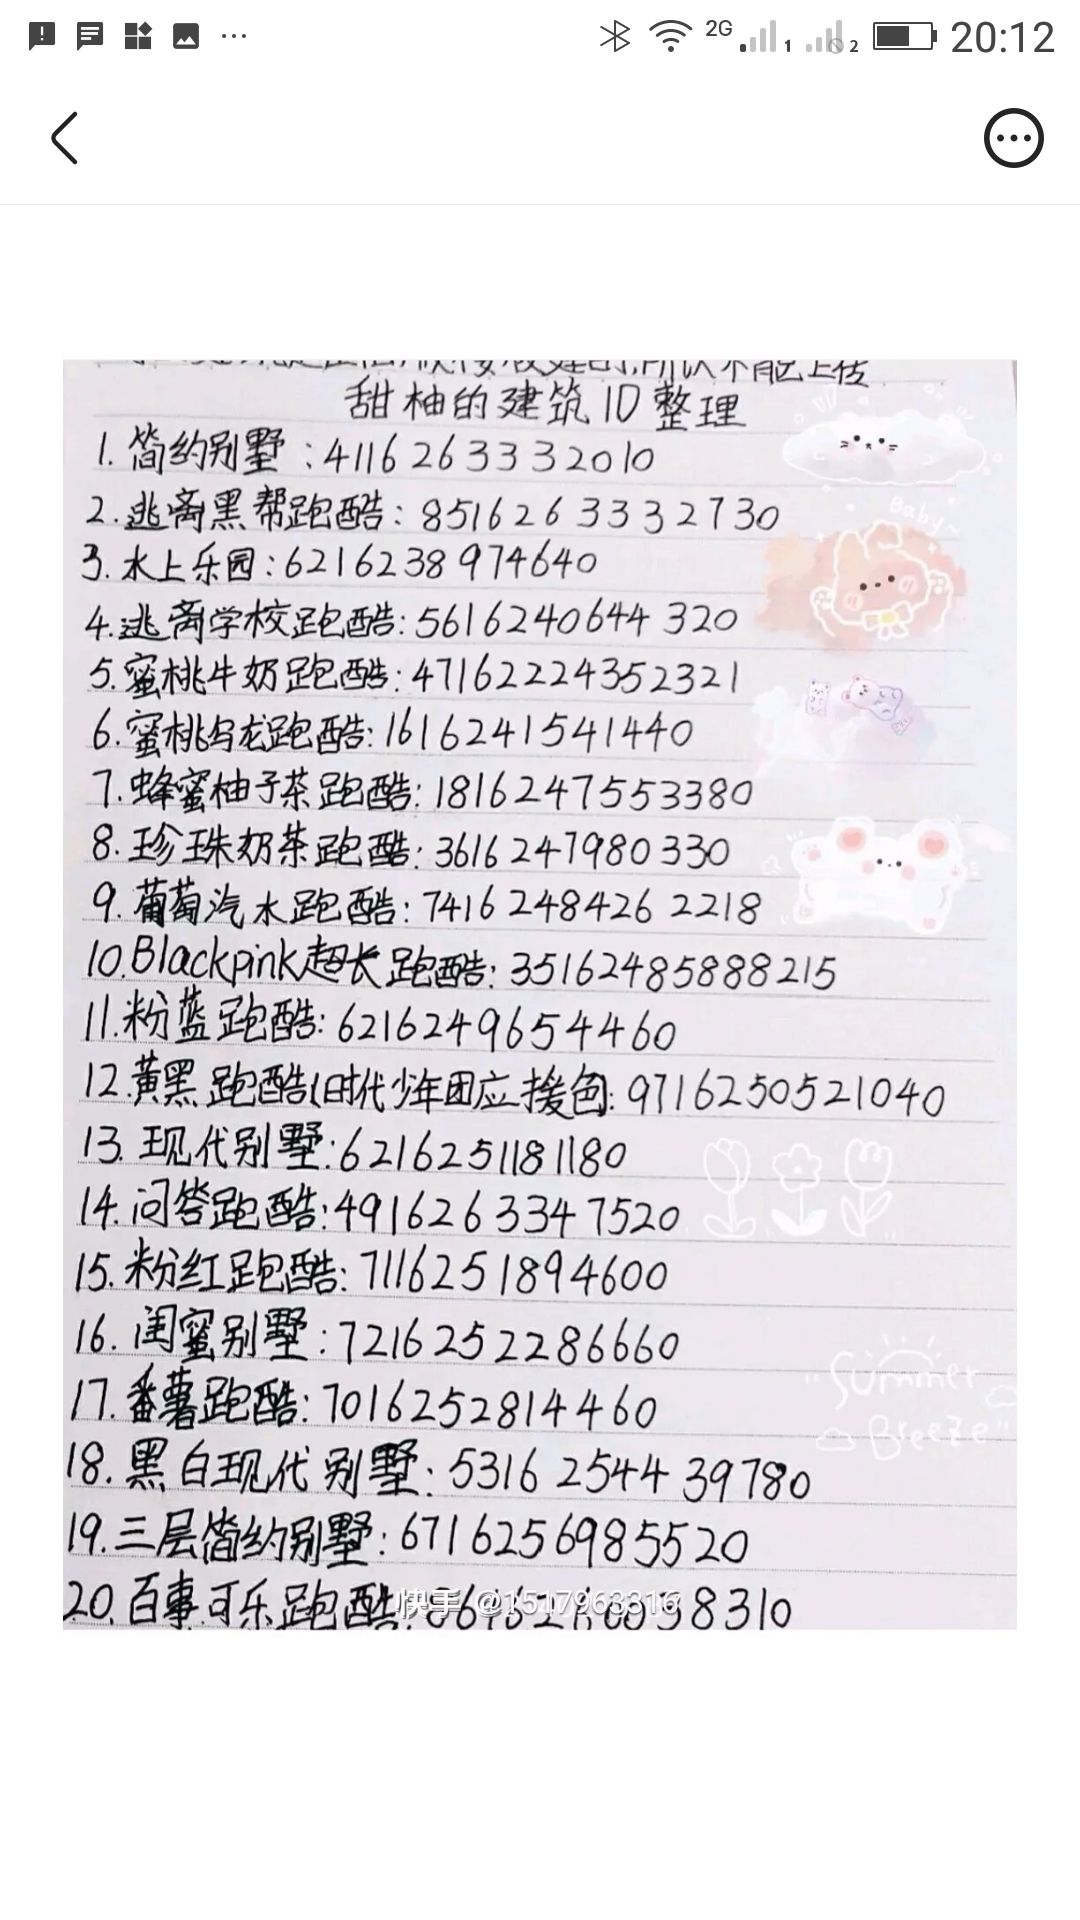 2G
1
2
20:12
甜柚的建筑ID整理
1.简约别墅:4116263332010
2.逃离黑帮跑酷:8516263332730
Baby~
3.水上乐园:6216238974640
4.逃离学校跑酷:5616240644320
5.蜜桃牛奶跑酷:47162224352321
6.蜜桃乌龙跑酷:1616241541440
7.蜂蜜柚子茶跑酷:1816247553380
8.珍珠奶茶跑酷:3616247980330
9.葡萄汽水跑酷:74162484262218
10.Blackpink超长跑酷:35162485888215
11.粉蓝跑酷:6216249654460
12.黄黑跑酷(时代少年团应援色:9716250521040
13.现代别墅:6216251181180
14.问答跑酷:4916263347520
15.粉红跑酷:7116251894600
16.闺蜜别墅:7216252286660
"Summer
17.番薯跑酷:7016252814460
Breeze"
18.黑白现代别墅:5316254439780
19.三层简约别墅:6716256985520
20.百事可乐跑酷
快手 @1517963316